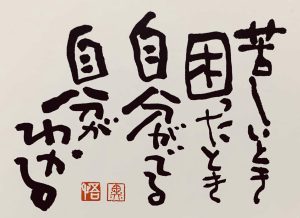 苦しいとき
困ったとき
自分がでる
自分が
わかる